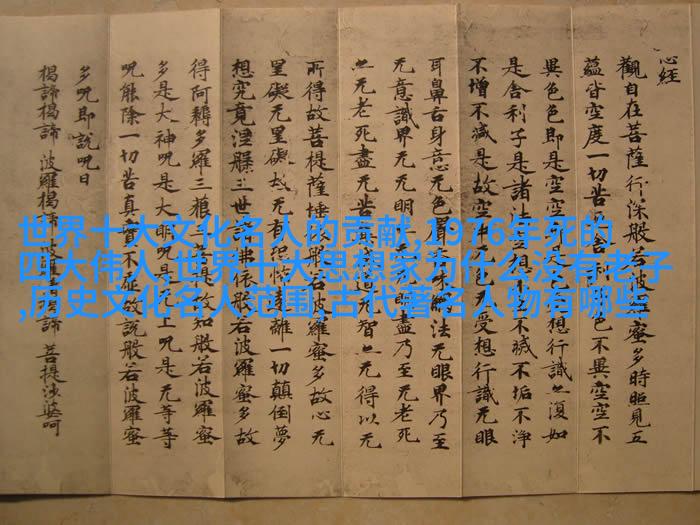 心经
觀自在菩薩行深般若波羅蜜多時照見五
蘊皆空度一切苦厄舍利子色不異空空不
異色色即是空空即是色受想行識亦復如
是舍利子是諸法空相不生不滅不垢不淨
不增不減是故空中无色无受想行識无眼
耳鼻舌身意无色聲香味觸法无眼界乃至
无意識界无无明亦无无明盡乃至无老死
亦无老死盡无苦集滅道无智亦无得以无
所得故菩提薩埵依般若波羅蜜多故心无
罣礙无罣礙故无有恐怖遠離一切顛倒夢
想究竟涅槃三世諸佛依般若波羅蜜多故
得阿耨多羅三藐三菩提故知般若波羅蜜
多是大神咒是大明咒是无上咒是无等等
咒能除一切苦真實不虛故說般若波羅蜜
多咒即說咒曰
揭諦揭諦 波羅揭諦 波羅僧揭諦 菩提娑婆呵
世界十大文化名人的贡献,1976年死的
四大伟人,世界十大思想家为什么没有老子
,历史文化名人范围,古代著名人物有哪些